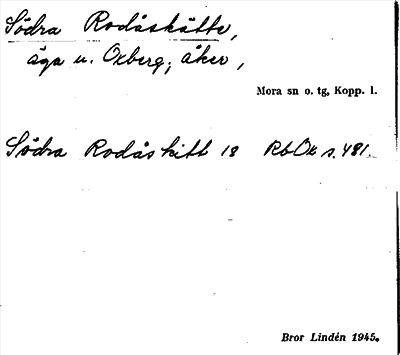 Södra Rodåskätte,
äga u. Oxberg; åker,
Mora sn o. tg, Kopp. l.
Södra Rodås kitt 18 RbOx s. 481.
Bror Lindén 1945.